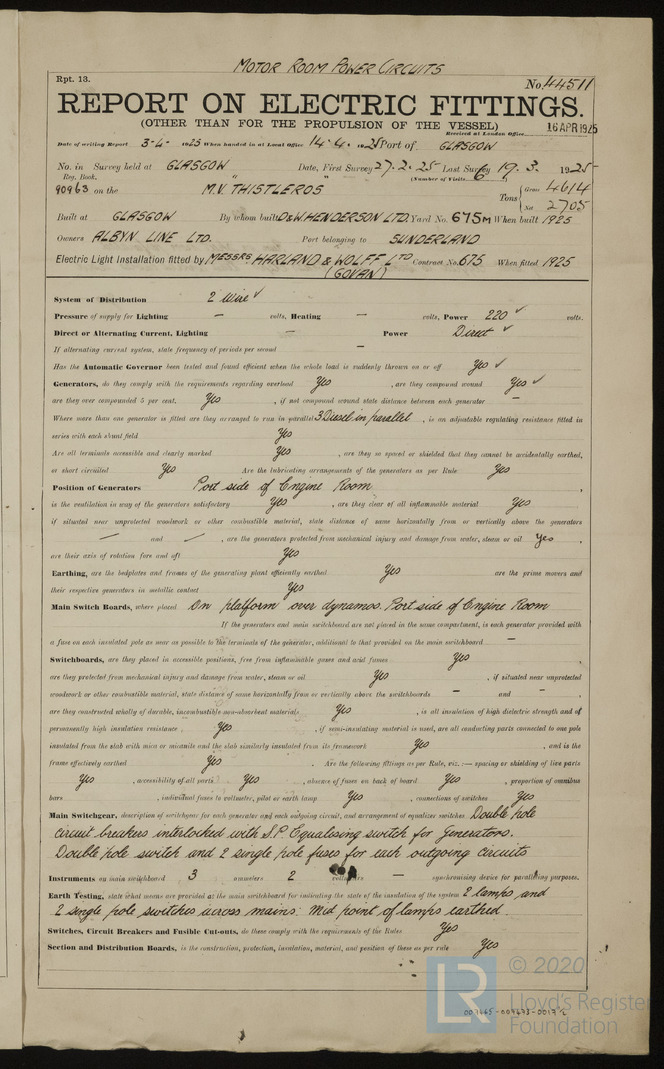 MOTOR ROOM POWER CIRCUITS
Rpt. 13.
No. 44511
REPORT ON ELECTRIC FITTINGS.
(OTHER THAN FOR THE PROPULSION OF THE VESSEL)
Received at London Office 16 APR 1925
Date of writing Report 3-4- 1925 When handed in at Local Office 14-4- 1925 Port of GLASGOW
No. in Survey held at GLASGOW Date, First Survey 27-2-25 Last Survey 19.3. 1925
Reg. Book. (Number of Visits 6)
90963 on the M.V. THISTLEROS Tons { Gross 4614
Net 2705
Built at GLASGOW By whom built D & W HENDERSON LTD. Yard No. 675M When built 1925
Owners ALBYN LINE LTD. Port belonging to SUNDERLAND
Electric Light Installation fitted by MESSRS HARLAND & WOLFF LTD Contract No. 675 When fitted 1925
(GOVAN)
System of Distribution 2 Wire ✓
Pressure of supply for Lighting — volts, Heating — volts, Power 220 ✓ volts.
Direct or Alternating Current, Lighting — Power Direct ✓
If alternating current system, state frequency of periods per second —
Has the Automatic Governor been tested and found efficient when the whole load is suddenly thrown on or off Yes ✓
Generators, do they comply with the requirements regarding overload Yes , are they compound wound Yes ✓
are they over compounded 5 per cent. Yes , if not compound wound state distance between each generator —
Where more than one generator is fitted are they arranged to run in parallel 3 Diesel in parallel , is an adjustable regulating resistance fitted in
series with each shunt field Yes
Are all terminals accessible and clearly marked Yes , are they so spaced or shielded that they cannot be accidentally earthed,
or short circuited Yes Are the lubricating arrangements of the generators as per Rule Yes
Position of Generators Port side of Engine Room ,
is the ventilation in way of the generators satisfactory Yes , are they clear of all inflammable material Yes
if situated near unprotected woodwork or other combustible material, state distance of same horizontally from or vertically above the generators
— and — , are the generators protected from mechanical injury and damage from water, steam or oil Yes ,
are their axis of rotation fore and aft Yes
Earthing, are the bedplates and frames of the generating plant efficiently earthed Yes are the prime movers and
their respective generators in metallic contact Yes
Main Switch Boards, where placed On platform over dynamos. Port side of Engine Room
If the generators and main switchboard are not placed in the same compartment, is each generator provided with
a fuse on each insulated pole as near as possible to the terminals of the generator, additional to that provided on the main switchboard —
Switchboards, are they placed in accessible positions, free from inflammable gases and acid fumes Yes ,
are they protected from mechanical injury and damage from water, steam or oil Yes , if situated near unprotected
woodwork or other combustible material, state distance of same horizontally from or vertically above the switchboards — and — ,
are they constructed wholly of durable, incombustible non-absorbent materials Yes , is all insulation of high dielectric strength and of
permanently high insulation resistance , Yes , if semi-insulating material is used, are all conducting parts connected to one pole
insulated from the slab with mica or micanite and the slab similarly insulated from its framework Yes , and is the
frame effectively earthed Yes . Are the following fittings as per Rule, viz. :— spacing or shielding of live parts
Yes , accessibility of all parts Yes , absence of fuses on back of board Yes , proportion of omnibus
bars , individual fuses to voltmeter, pilot or earth lamp Yes , connections of switches Yes
Main Switchgear, description of switchgear for each generator and each outgoing circuit, and arrangement of equalizer switches Double pole
circuit breakers interlocked with S.P. Equalising switch for generators.
Double pole switch and 2 single pole fuses for each outgoing circuits
Instruments on main switchboard 3 ammeters 2 voltmeters — synchronising device for paralleling purposes.
Earth Testing, state what means are provided at the main switchboard for indicating the state of the insulation of the system 2 lamps and
2 single pole switches across mains. Mid point of lamps earthed
Switches, Circuit Breakers and Fusible Cut-outs, do these comply with the requirements of the Rules Yes
Section and Distribution Boards, is the construction, protection, insulation, material, and position of these as per rule Yes
© 2020
LR Lloyd's Register
Foundation